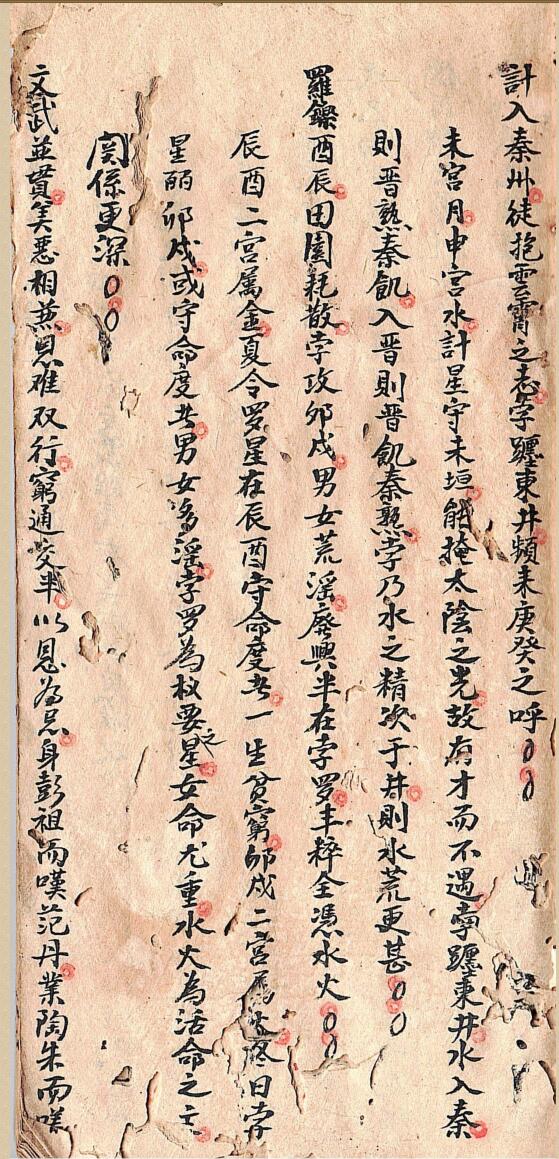 計入秦州徒抱雲霄之志孛躔東井頻來庚癸之呼
未宮月申宮水計星守未垣能掩太陰之光故有才而不遇孛躔東井水入秦
則晋熟秦飢入晋則晋飢秦熟孛乃水之精次于井則水荒更甚
羅鑠酉辰田園耗散孛攻卯戍男女荒滛廢興半在孛罗丰粹全憑水火
辰酉二宮属金夏令罗星在辰酉守命度者一生貧窮卯戍二宮属火冬日孛
星丽卯戍或守命度者男女多滛孛罗為权要之星女命尤重水火為活命之
関係更深
文武並貫美悪相兼恩难双行窮通交半以恩為忌身彭祖而嘆范丹業陶朱而嗟